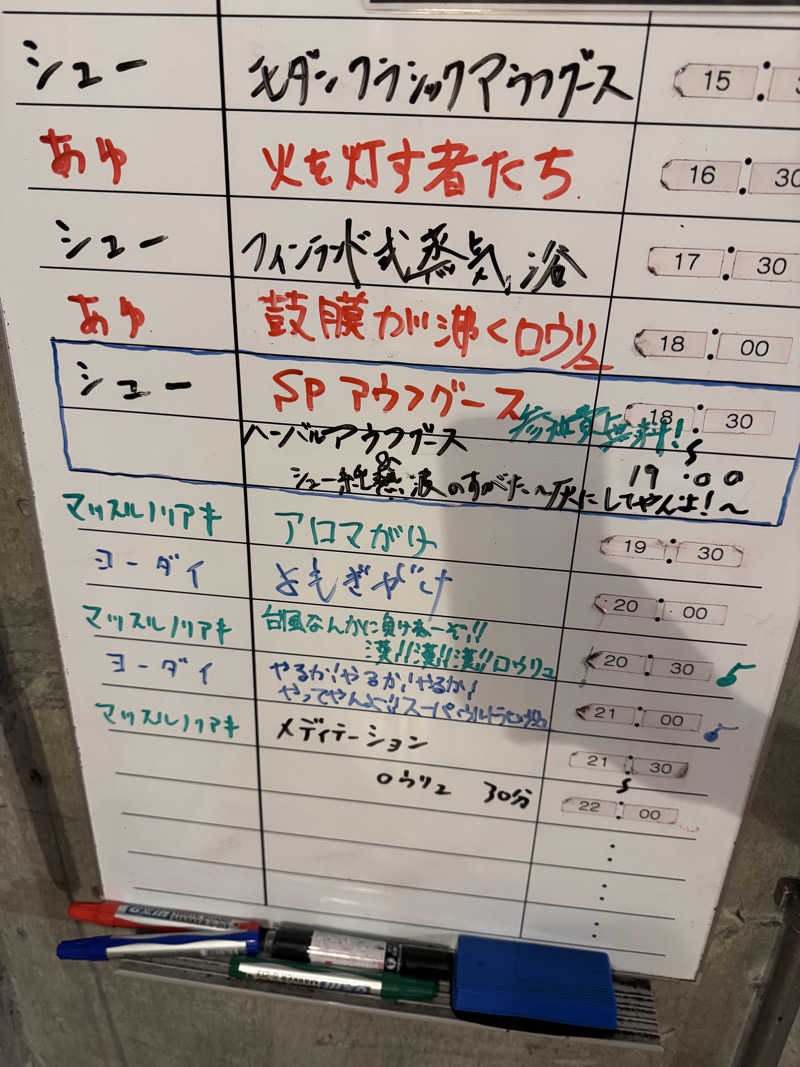 シュー モダンクラシックアウフグース 15:3
あゆ 火を灯す者たち 16:30
シュー フィンランド式蒸気浴 17:30
あゆ 鼓膜が沸くロウリュ 18:00
シュー SPアウフグース 18:30
無料!
ハーバルアウフグース
&
シュー 熱波のすがた〜灰にしてやんよ!〜 19:00
マッスルノリアキ アロマがけ 19:30
ヨーダイ よもぎがけ 20:00
マッスルノリアキ 台風なんかに負けねーぞ!!
漢!!漢!!漢!!ロウリュ 20:30
ヨーダイ やるか!やるか!やるか!
やってやんよ!!スーパーウルトラ 21:00
マッスルノリアキ メディテーション 21:30
ロウリュ 30分 22:00